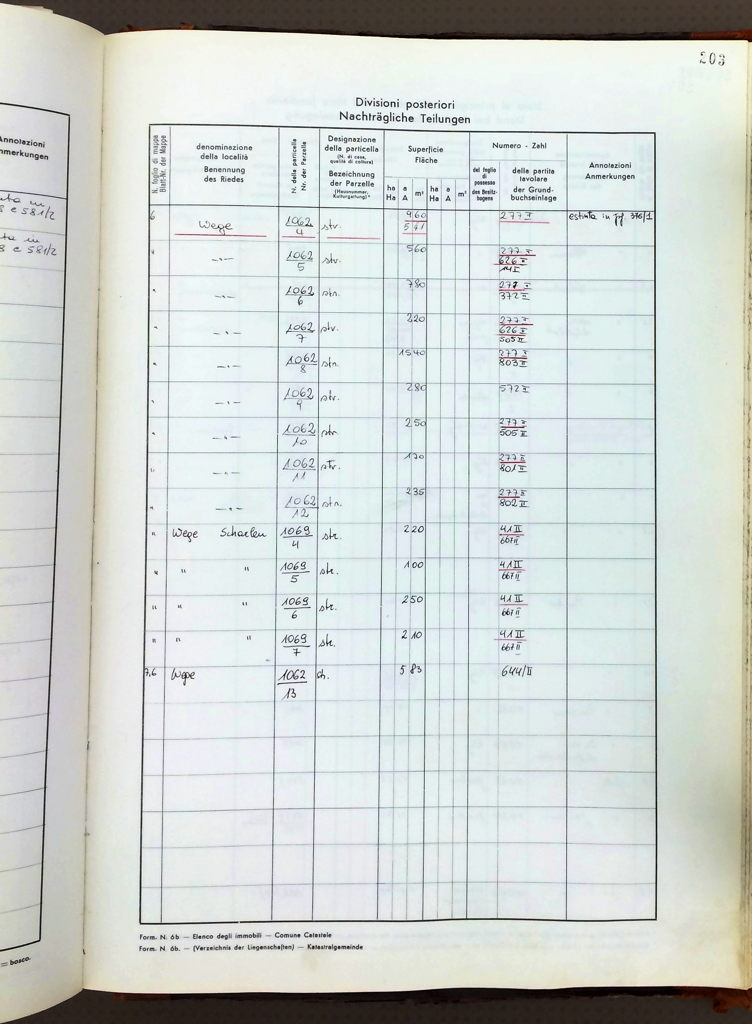 203
Annotazioni
Anmerkungen
e 581/2
e 581/2
= bosco.
Divisioni posteriori
Nachträgliche Teilungen
N. foglio di mappa
Blatt-Nr. der Mappe
denominazione
della località
Benennung
des Riedes
N. della particella
Nr. der Parzelle
Designazione
della particella
(N. di casa,
qualità di coltura)
Bezeichnung
der Parzelle
(Hausnummer,
Kulturgattung)
Superficie
Fläche
ha a m² ha a m²
Ha A Ha A
Numero - Zahl
del foglio
di
possesso
des Besitz-
bogens
della partita
tavolare
der Grund-
buchseinlage
Annotazioni
Anmerkungen
6 Wege 1062/4 str. 960 277 II estinta in pf. 376/1
541
" -"- 1062/5 str. 560 277 II
626 II
141
" -"- 1062/6 str. 780 277 II
372 II
" -"- 1062/7 str. 220 277 II
626 II
505 II
" -"- 1062/8 str. 1540 277 II
803 II
" -"- 1062/9 str. 280 572 II
" -"- 1062/10 str. 250 277 II
505 II
" -"- 1062/11 str. 170 277 II
801 II
" -"- 1062/12 str. 235 277 II
802 II
" Wege Scharlen 1069/4 str. 220 41 II
667 II
" " " 1069/5 str. 100 41 II
667 II
" " " 1069/6 str. 250 41 II
667 II
" " " 1069/7 str. 210 41 II
667 II
7,6 Wege 1062/13 ch. 5 83 644/II
Form. N. 6b — Elenco degli immobili — Comune Catastale
Form. N. 6b. — (Verzeichnis der Liegenschaften) — Katastralgemeinde